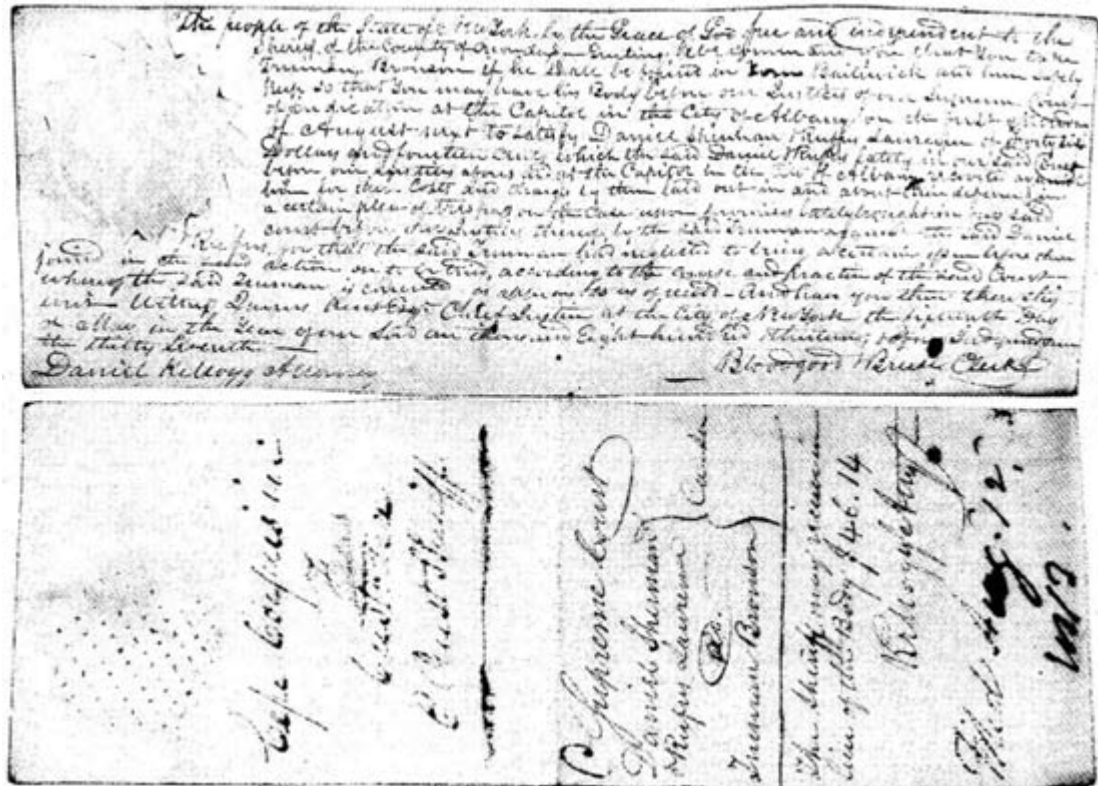 The people of the State of New York, by the Grace of God free and independent to the
Sheriff of the County of Onondaga Greeting. We command you that You take
Truman Bronson if he shall be found in Your Bailiwick and him safely
keep so that You may have his Body before our Justices of our Supreme Court
of Judicature at the Capitol in the City of Albany on the first Monday
of August next to satisfy Daniel Rufus Laurence
Dollars and fourteen Cents which the said Daniel & Rufus lately in our said Court
before our Justices aforesaid at the Capitol in the City of Albany recovered against
him for their Costs and charges by them laid out in and about their defence in
a certain plea of trespass on the Case upon promises lately brought in our said
court before our Justices thereof by the said Truman against the said Daniel
& Rufus, for that the said Truman had neglected to bring a certain issue before then
joined in the said action on to be tried, according to the course and practice of the said Court
whereof the said Truman is convicted as appears to us of record - And have you then there this
writ Witness James Kent Esqr. Chief Justice at the City of New York the fifteenth Day
of May in the Year of our Lord one thousand Eight hundred & thirteen, & of our Independence
the thirty seventh
Daniel Kellogg Attorney
Bloodgood & Breese Clerks
Cepi Corpus
Custodia
Sheriff
Supreme Court
Daniel Shenan
& Rufus Laurence
vs.
Truman Bronson
The Sheriff may
of the Body $46.14
Kellogg Atty
Filed Aug. 12
1813.